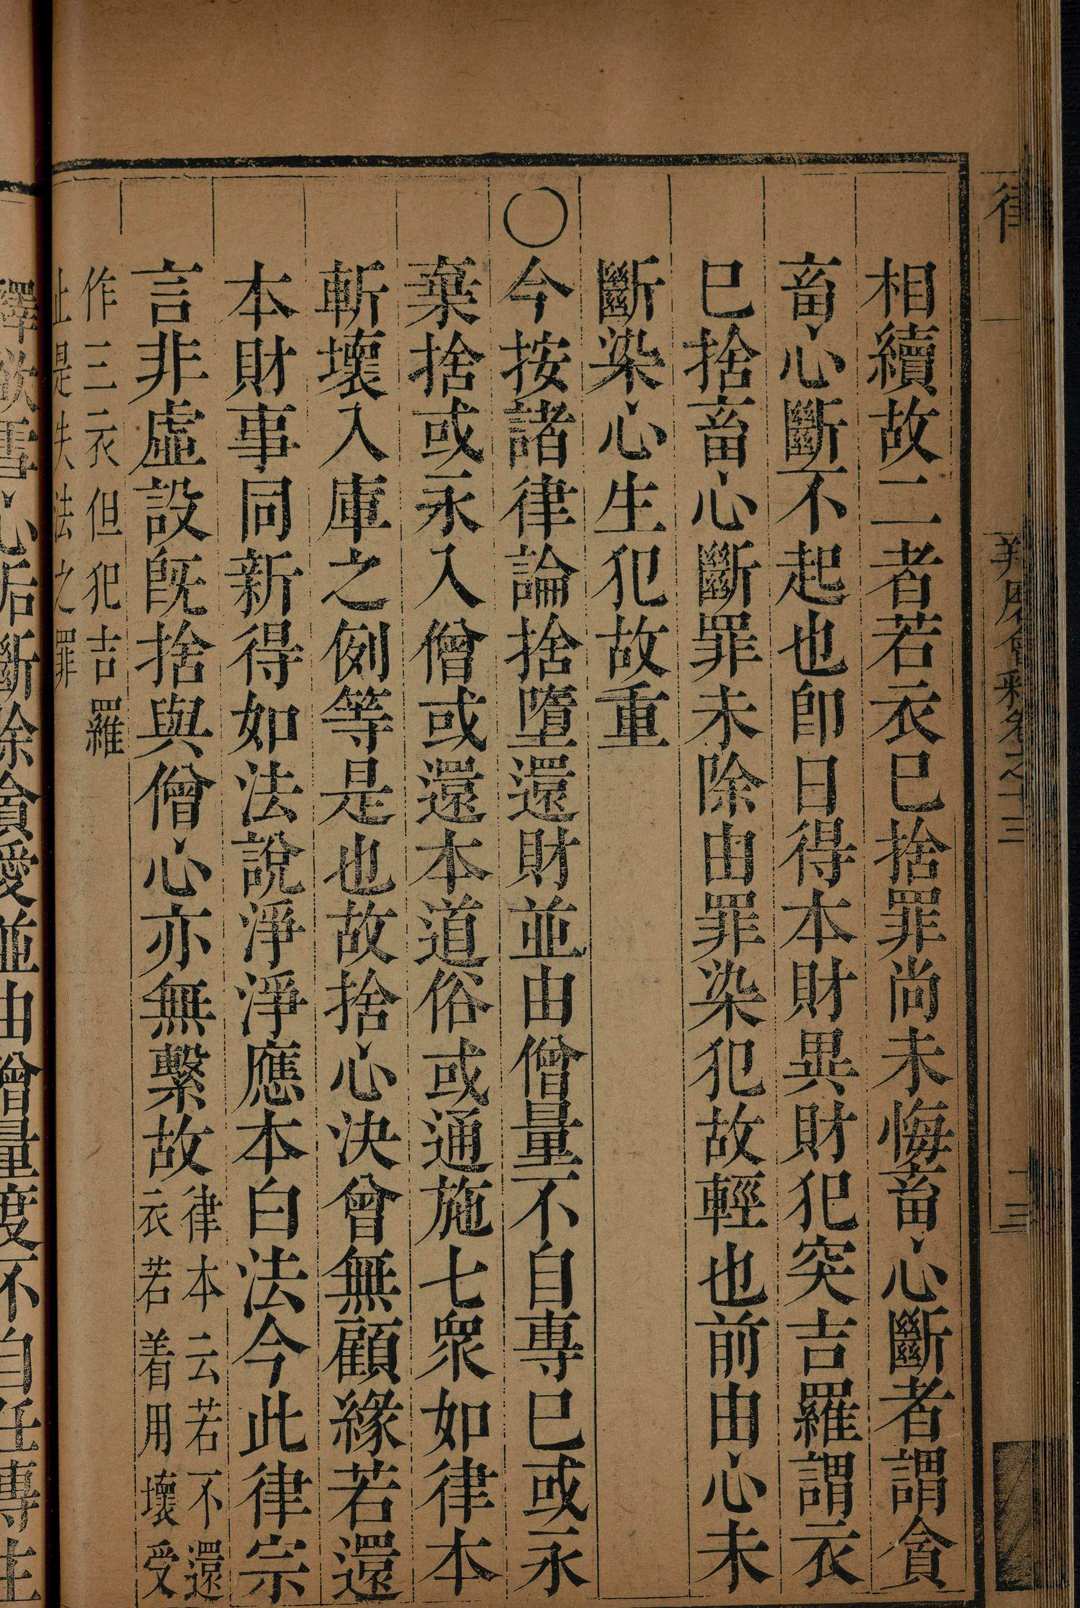 相續故二者若衣已捨罪尚未悔畜心斷者謂貪
畜心斷不起也卽日得本財異財犯突吉羅謂衣
已捨畜心斷罪未除由罪染犯故輕也前由心未
斷染心生犯故重
〇今按諸律論捨墮還財並由僧量不自專已或永
棄捨或永入僧或還本道俗或通施七衆如律本
斬壞入庫之例等是也故捨心決曾無顧緣若還
本財事同新得如法說淨淨應本白法今此律宗
言非虛設旣捨與僧心亦無繫故律本云若不還
衣若着用壞受
作三衣但犯吉羅
此是失法之罪
心后斷除貪愛並由僧量度不自任專主
律
羯磨會釋卷之十三
十三